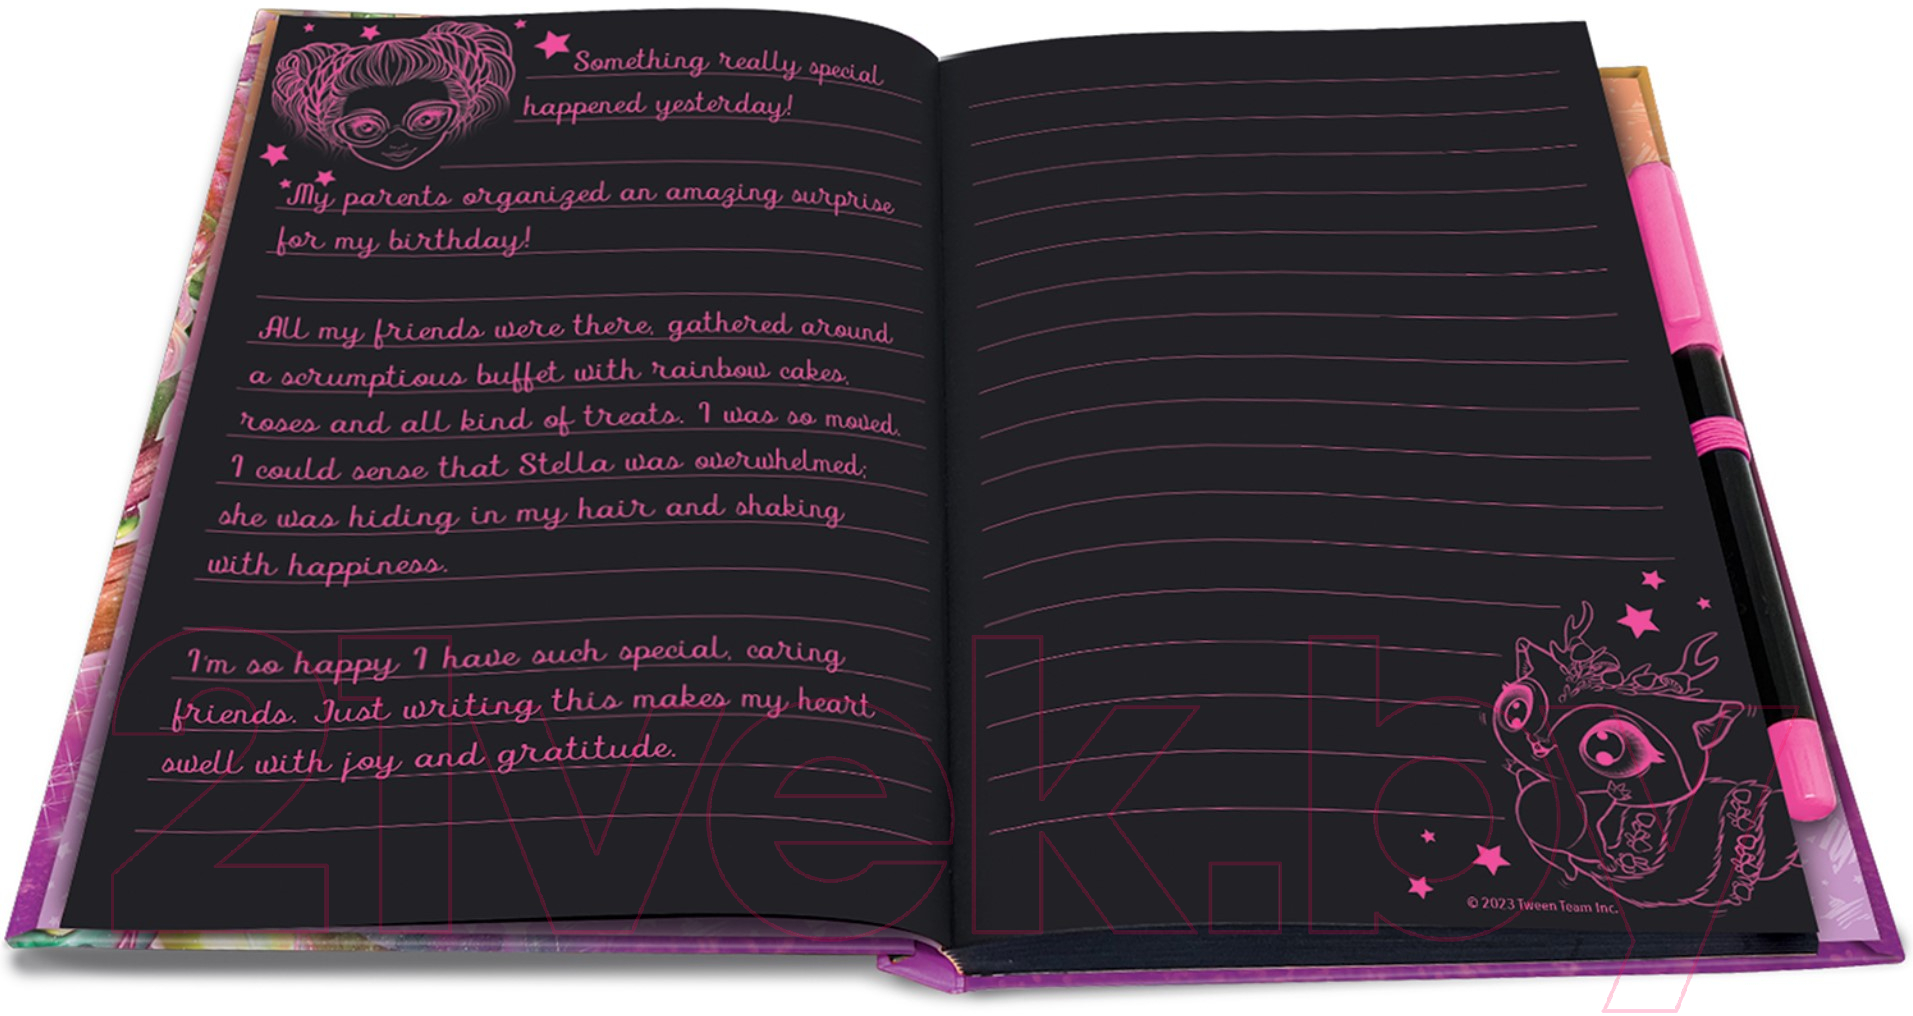 Something really special
happened yesterday!
My parents organized an amazing surprise
for my birthday!
All my friends were there, gathered around
a scrumptious buffet with rainbow cakes,
roses and all kind of treats. I was so moved.
I could sense that Stella was overwhelmed;
she was hiding in my hair and shaking
with happiness.
I'm so happy I have such special, caring
friends. Just writing this makes my heart
swell with joy and gratitude.
© 2023 Tween Team Inc.
21vek.by